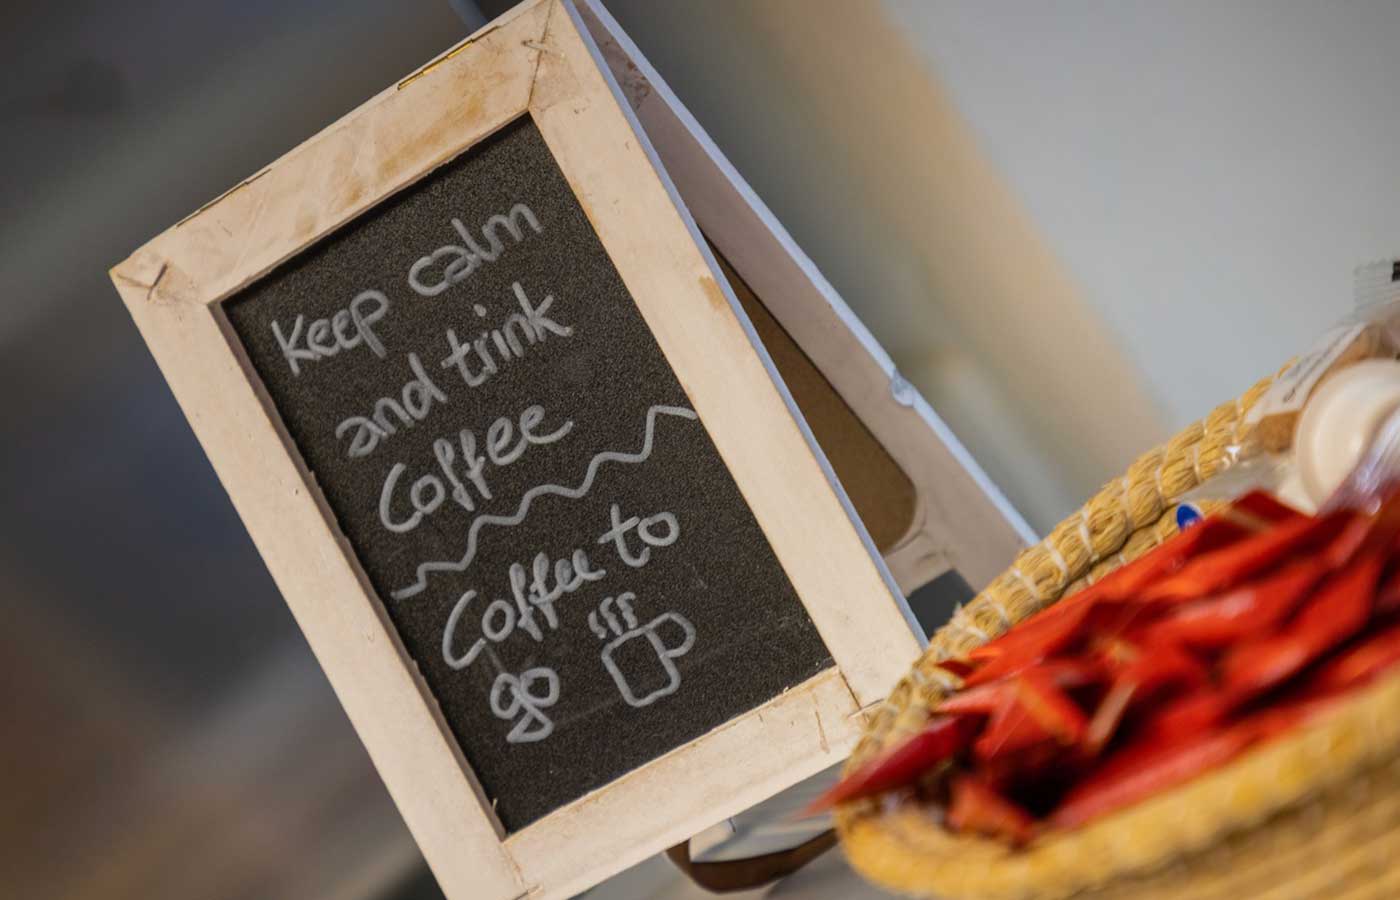 Keep calm
and trink
Coffee
Coffee to
go